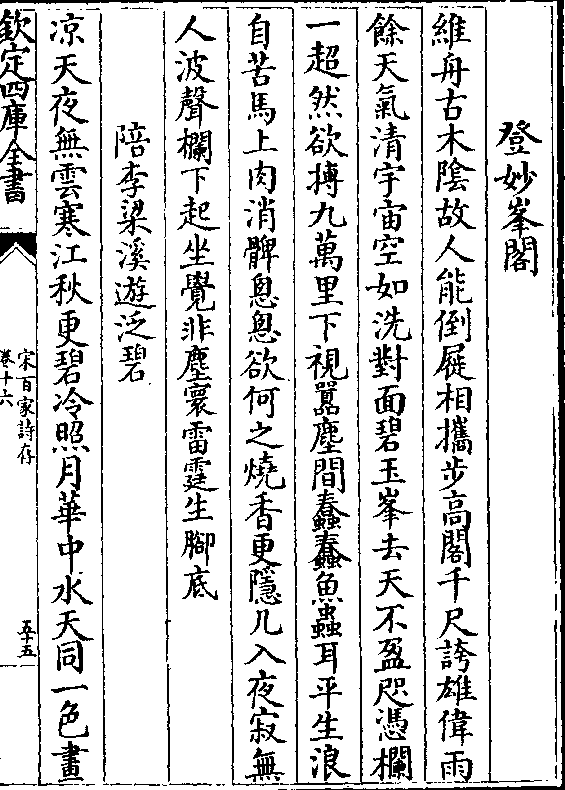 登妙峯閣
維舟古木陰故人能倒屣相攜步高閣千尺誇雄偉雨
餘天氣清宇宙空如洗對面碧玉峯去天不盈咫憑欄
一超然欲摶九萬里下視囂塵間蠢蠢魚蟲耳平生浪
自苦馬上肉消髀悤悤欲何之燒香更隱几入夜寂無
人波聲欄下起坐覺非塵寰雷霆生腳底
陪李梁溪遊泛碧
凉天夜無雲寒江秋更碧冷照月華中水天同一色畫
欽定四庫全書
宋百家詩存
卷十六
五十五